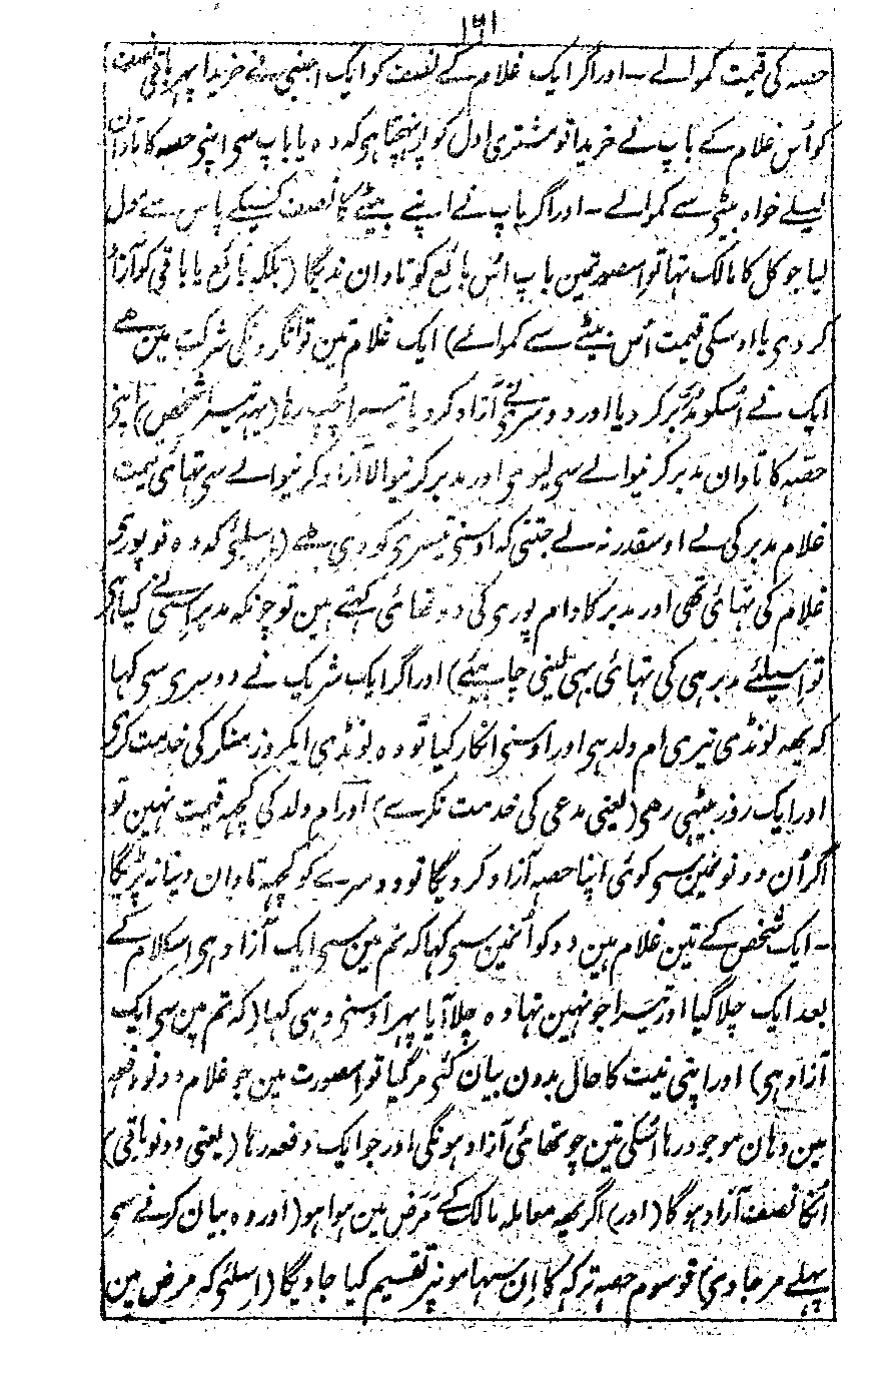 ۱۶۱
حصہ کی قیمت کموالے ۔ اور اگر ایک غلام کے نصف کو ایک اجنبی نے خریدا پہر باقی نصف
کو اُس غلام کے باپ نے خریدا تو مشتری اول کو پہنچتا ہی کہ وہ یا باپ سی اپنی حصہ کا تاوان
لیلے خواہ بیٹی سے کموالے ۔ اور اگر باپ نے اپنے بیٹے کا نصف کسیکے پاس سے مول
لیا جو کل کا مالک تہا تو اسصورتمین باپ اُس بائع کو تاوان ندیگا (بلکہ بائع یا باقی کو آزاد
کر دی یا اوسکی قیمت اُس بیٹے سے کموائے) ایک غلام تین توانگرونکی شرکت مین ہے
ایک نے اُسکو مدبر کر دیا اور دوسرے نے آزاد کردیا تیسرا چپ رہا (یہہ تیسرا شخص) اپنی
حصہ کا تاوان مدبر کرنیوالے سی لیوی اور مدبر کرنیوالا آزاد کرنیوالے سی تہائی قیمت
غلام مدبر کی لے اوسقدر نہ لے جتنی کہ اوسنی تیسری کو دی ہے (اسلئی کہ وہ تو پوری
غلام کی تہائی تھی اور مدبر کا دام پوری کی دو تہائی کہتے ہین تو چونکہ مدبر اسی نے کیا ہی
تو اسیلئے مدبر ہی کی تہائی بہی لینی چاہیئے) اور اگر ایک شریک نے دوسری سی کہا
کہ یہہ لونڈی تیری ام ولد ہی اور اوسنی انکار کیا تو وہ لونڈی ایکروز منکر کی خدمت کری
اور ایک روز بیٹہی رہی (یعنی مدعی کی خدمت نکرے) اور ام ولد کی کچہہ قیمت نہین تو
اگر اُن دونونمین سی کوئی اپنا حصہ آزاد کر دیگا تو دوسرے کو کچہہ تاوان دینا نہ پڑیگا
۔ ایک شخص کے تین غلام ہین دو کو اُنمین سی کہا کہ تم مین سی ایک آزاد ہی اس کلام کے
بعد ایک چلا گیا اور تیسرا جو نہین تہا وہ چلا آیا پہر اوسنی وہی کہا (کہ تم مین سی ایک
آزاد ہی) اور اپنی نیت کا حال بدون بیان کئی مر گیا تو اسصورت مین جو غلام دونو دفعہ
مین وہان موجود رہا اُسکی تین چوتھائی آزاد ہونگی اور جو ایک دفعہ رہا (یعنی دو نو باقی)
اُنکا نصف آزاد ہوگا (اور) اگر یہہ معاملہ مالک کے مرض مین ہوا ہو (اور وہ بیان کرنے سی
پہلے مر جاوی) تو سوم حصہ ترکہ کا اِن سہامونپر تقسیم کیا جاویگا (اسلئی کہ مرض مین